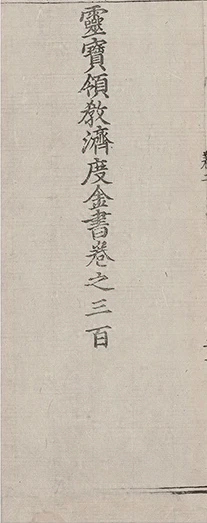 靈寶領教濟度金書卷之三百